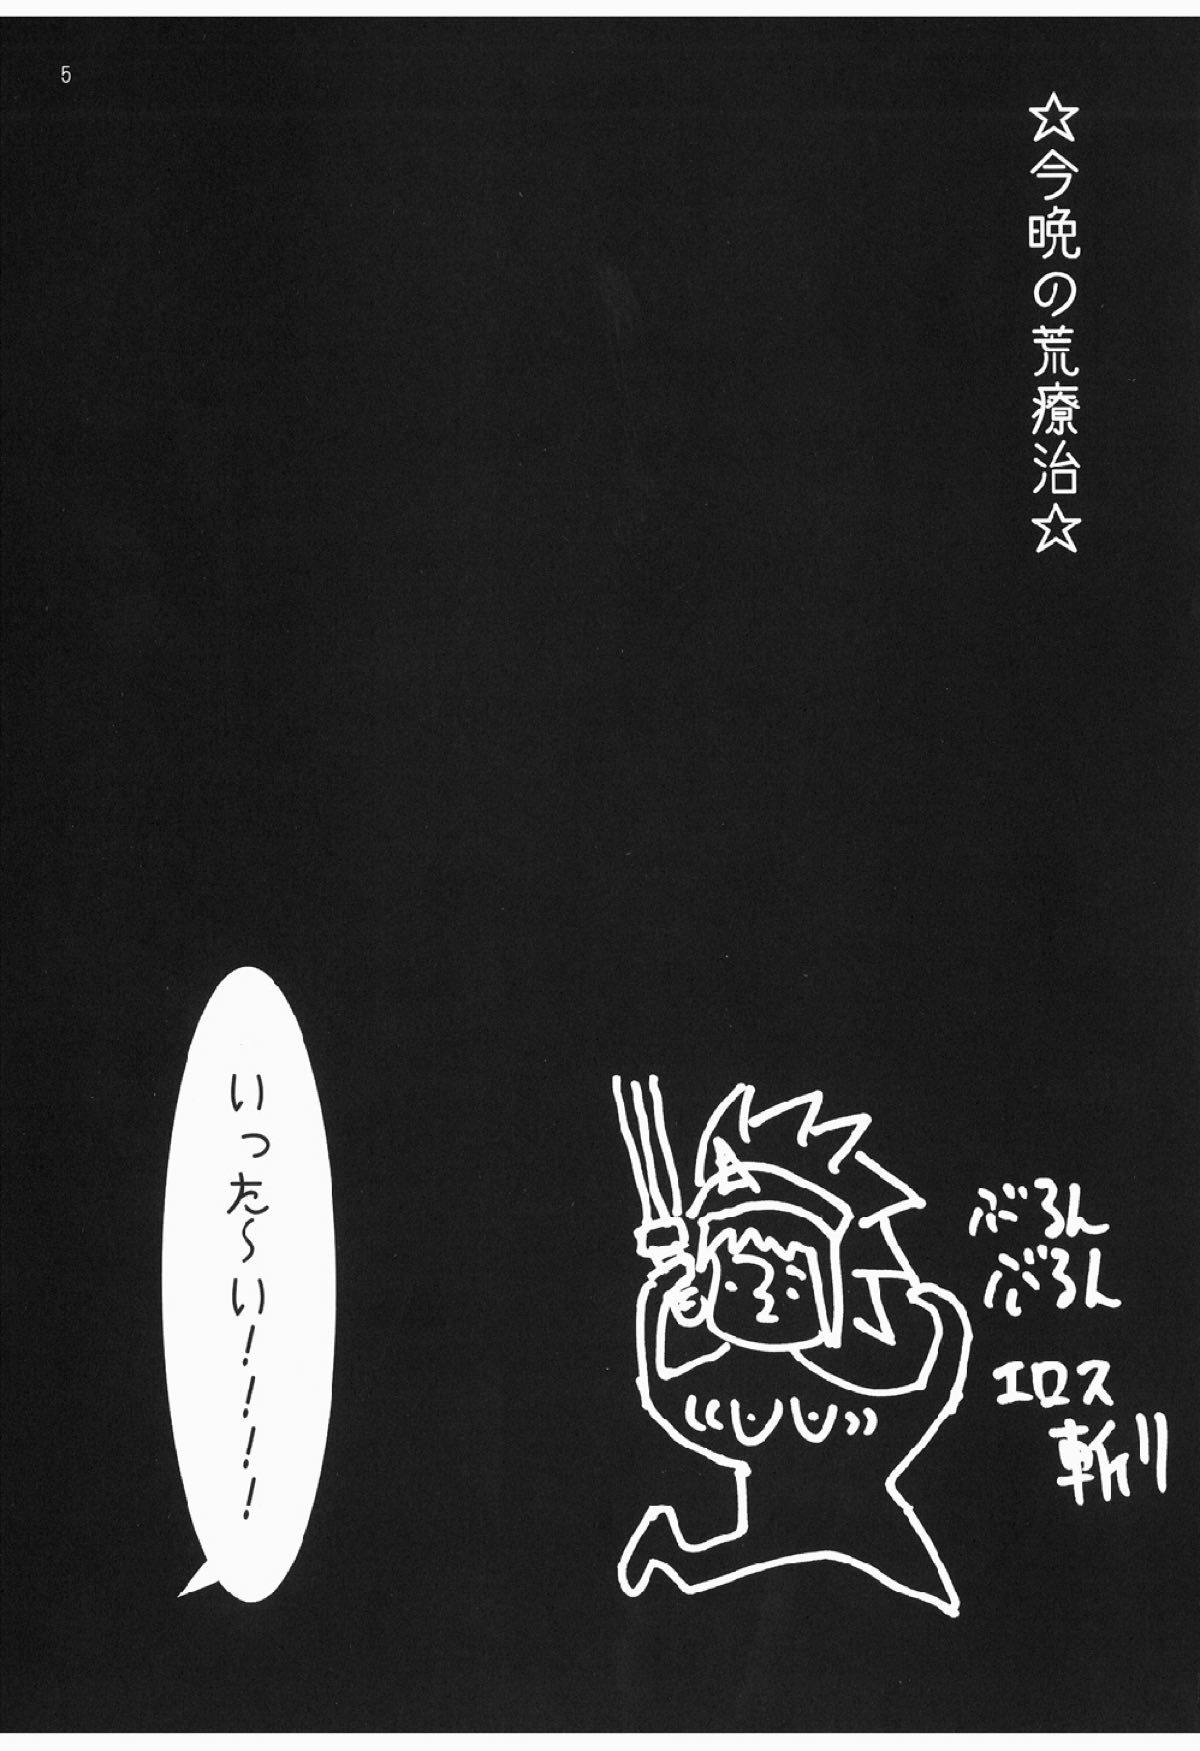 ☆今晩の荒療治☆
ぶるん
ぶるん
エロス
斬!!
いった〜い!!!!
5